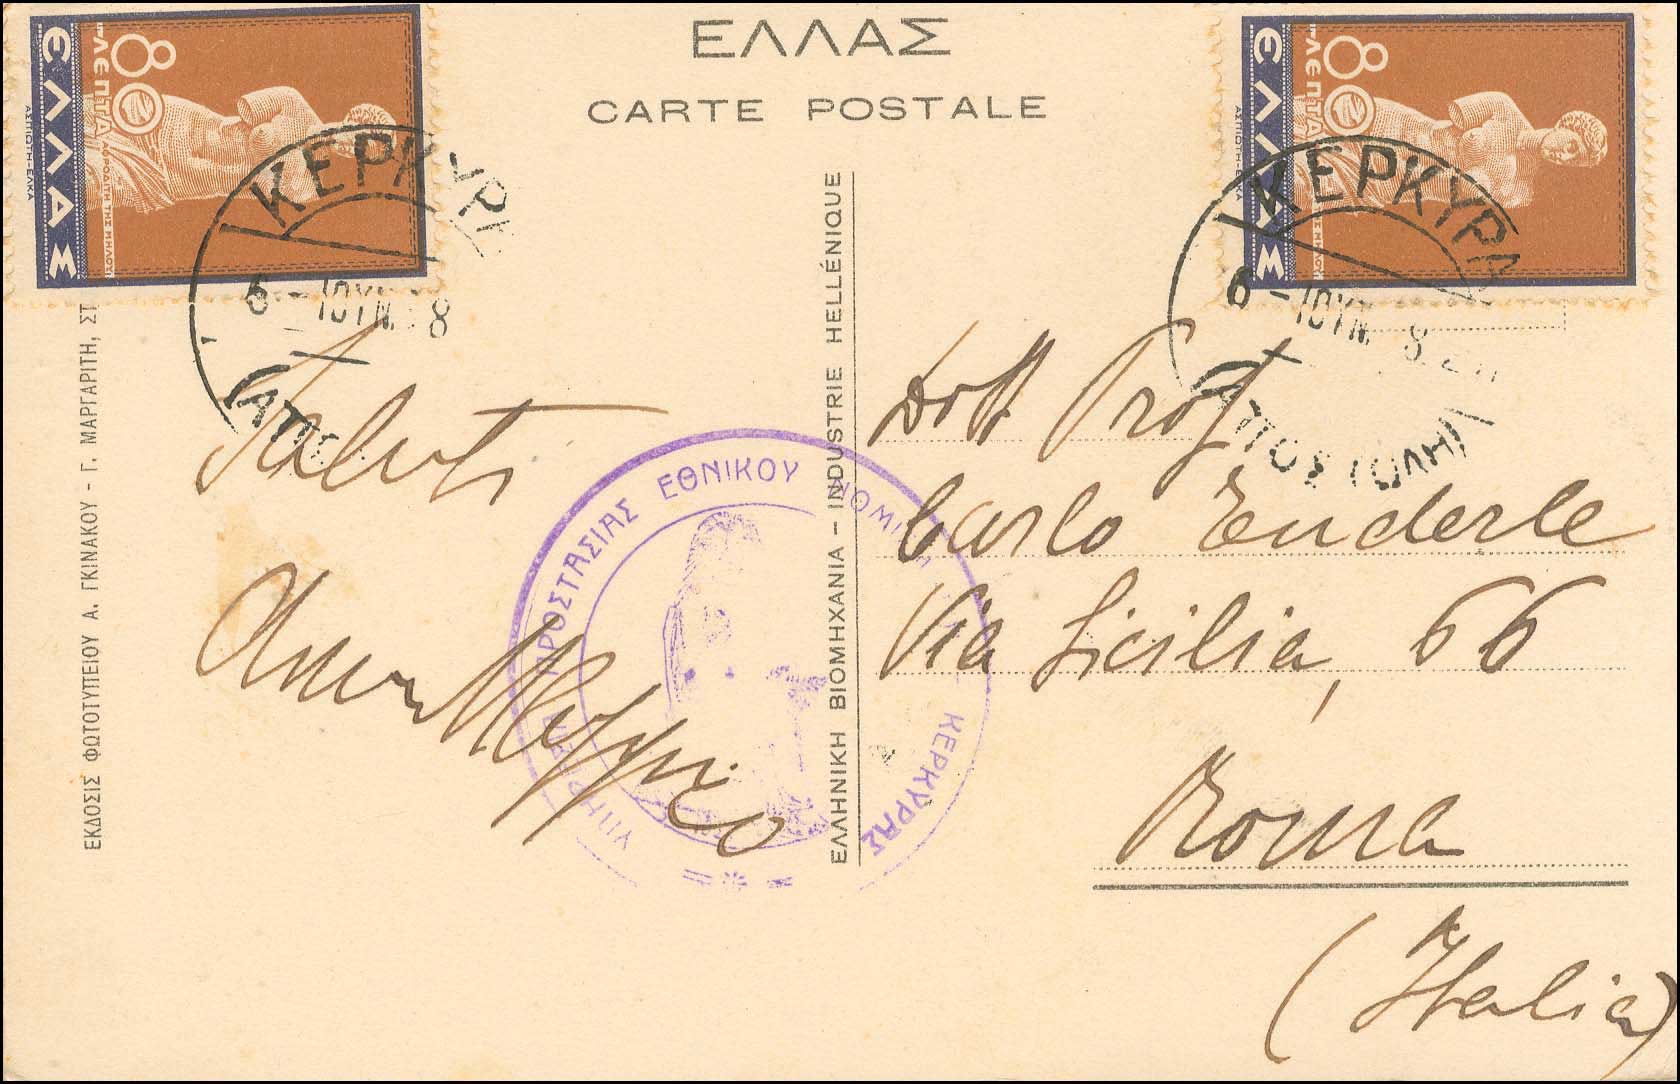 ΕΛΛΑΣ
CARTE POSTALE
80 ΛΕΠΤΑ
ΑΦΡΟΔΙΤΗ ΤΗΣ ΜΗΛΟΥ
ΕΛΛΑΣ
ΑΣΠΙΩΤΗ-ΕΛΚΑ
80 ΛΕΠΤΑ
ΤΗΣ ΜΗΛΟΥ
ΕΛΛΑΣ
ΚΕΡΚΥΡΑ
6 - ΙΟΥΝ. 8
ΚΕΡΚΥΡΑ
6 - ΙΟΥΝ. 8
ΑΠΟΣΤΟΛΗ
ΕΚΔΟΣΙΣ ΦΩΤΟΤΥΠΕΙΟΥ Α. ΓΚΙΝΑΚΟΥ - Γ. ΜΑΡΓΑΡΙΤΗ, ΣΤ
ΕΛΛΗΝΙΚΗ ΒΙΟΜΗΧΑΝΙΑ - INDUSTRIE HELLÉNIQUE
Saluti
ΠΡΟΣΤΑΣΙΑΣ ΕΘΝΙΚΟΥ ΚΕΡΚΥΡΑΣ
Dott Prof
Carlo Enderle
Via Sicilia, 66
Roma
(Italia)